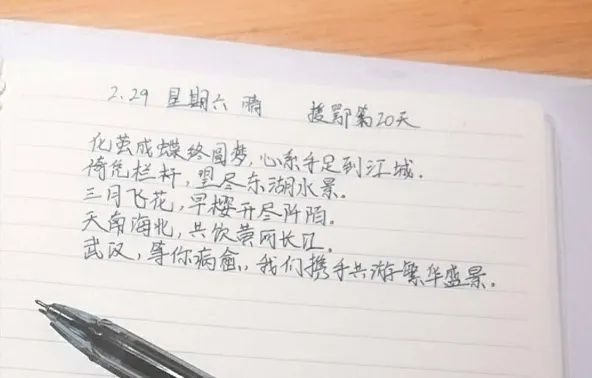 2.29 星期六 晴 援鄂第20天
化茧成蝶终圆梦,心系手足到江城。
倚凭栏杆,望尽东湖水景。
三月飞花,早樱开尽阡陌。
天南海北,共饮黄河长江。
武汉,等你病愈,我们携手共游繁华盛景。